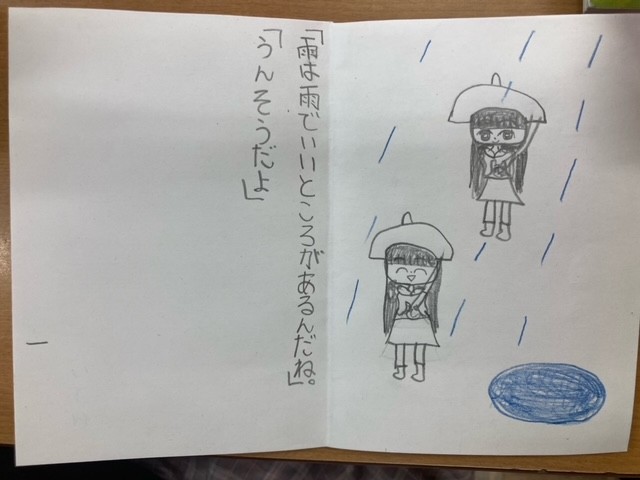 「雨は雨でいいところがあるんだね。」
「うんそうだよ」
一